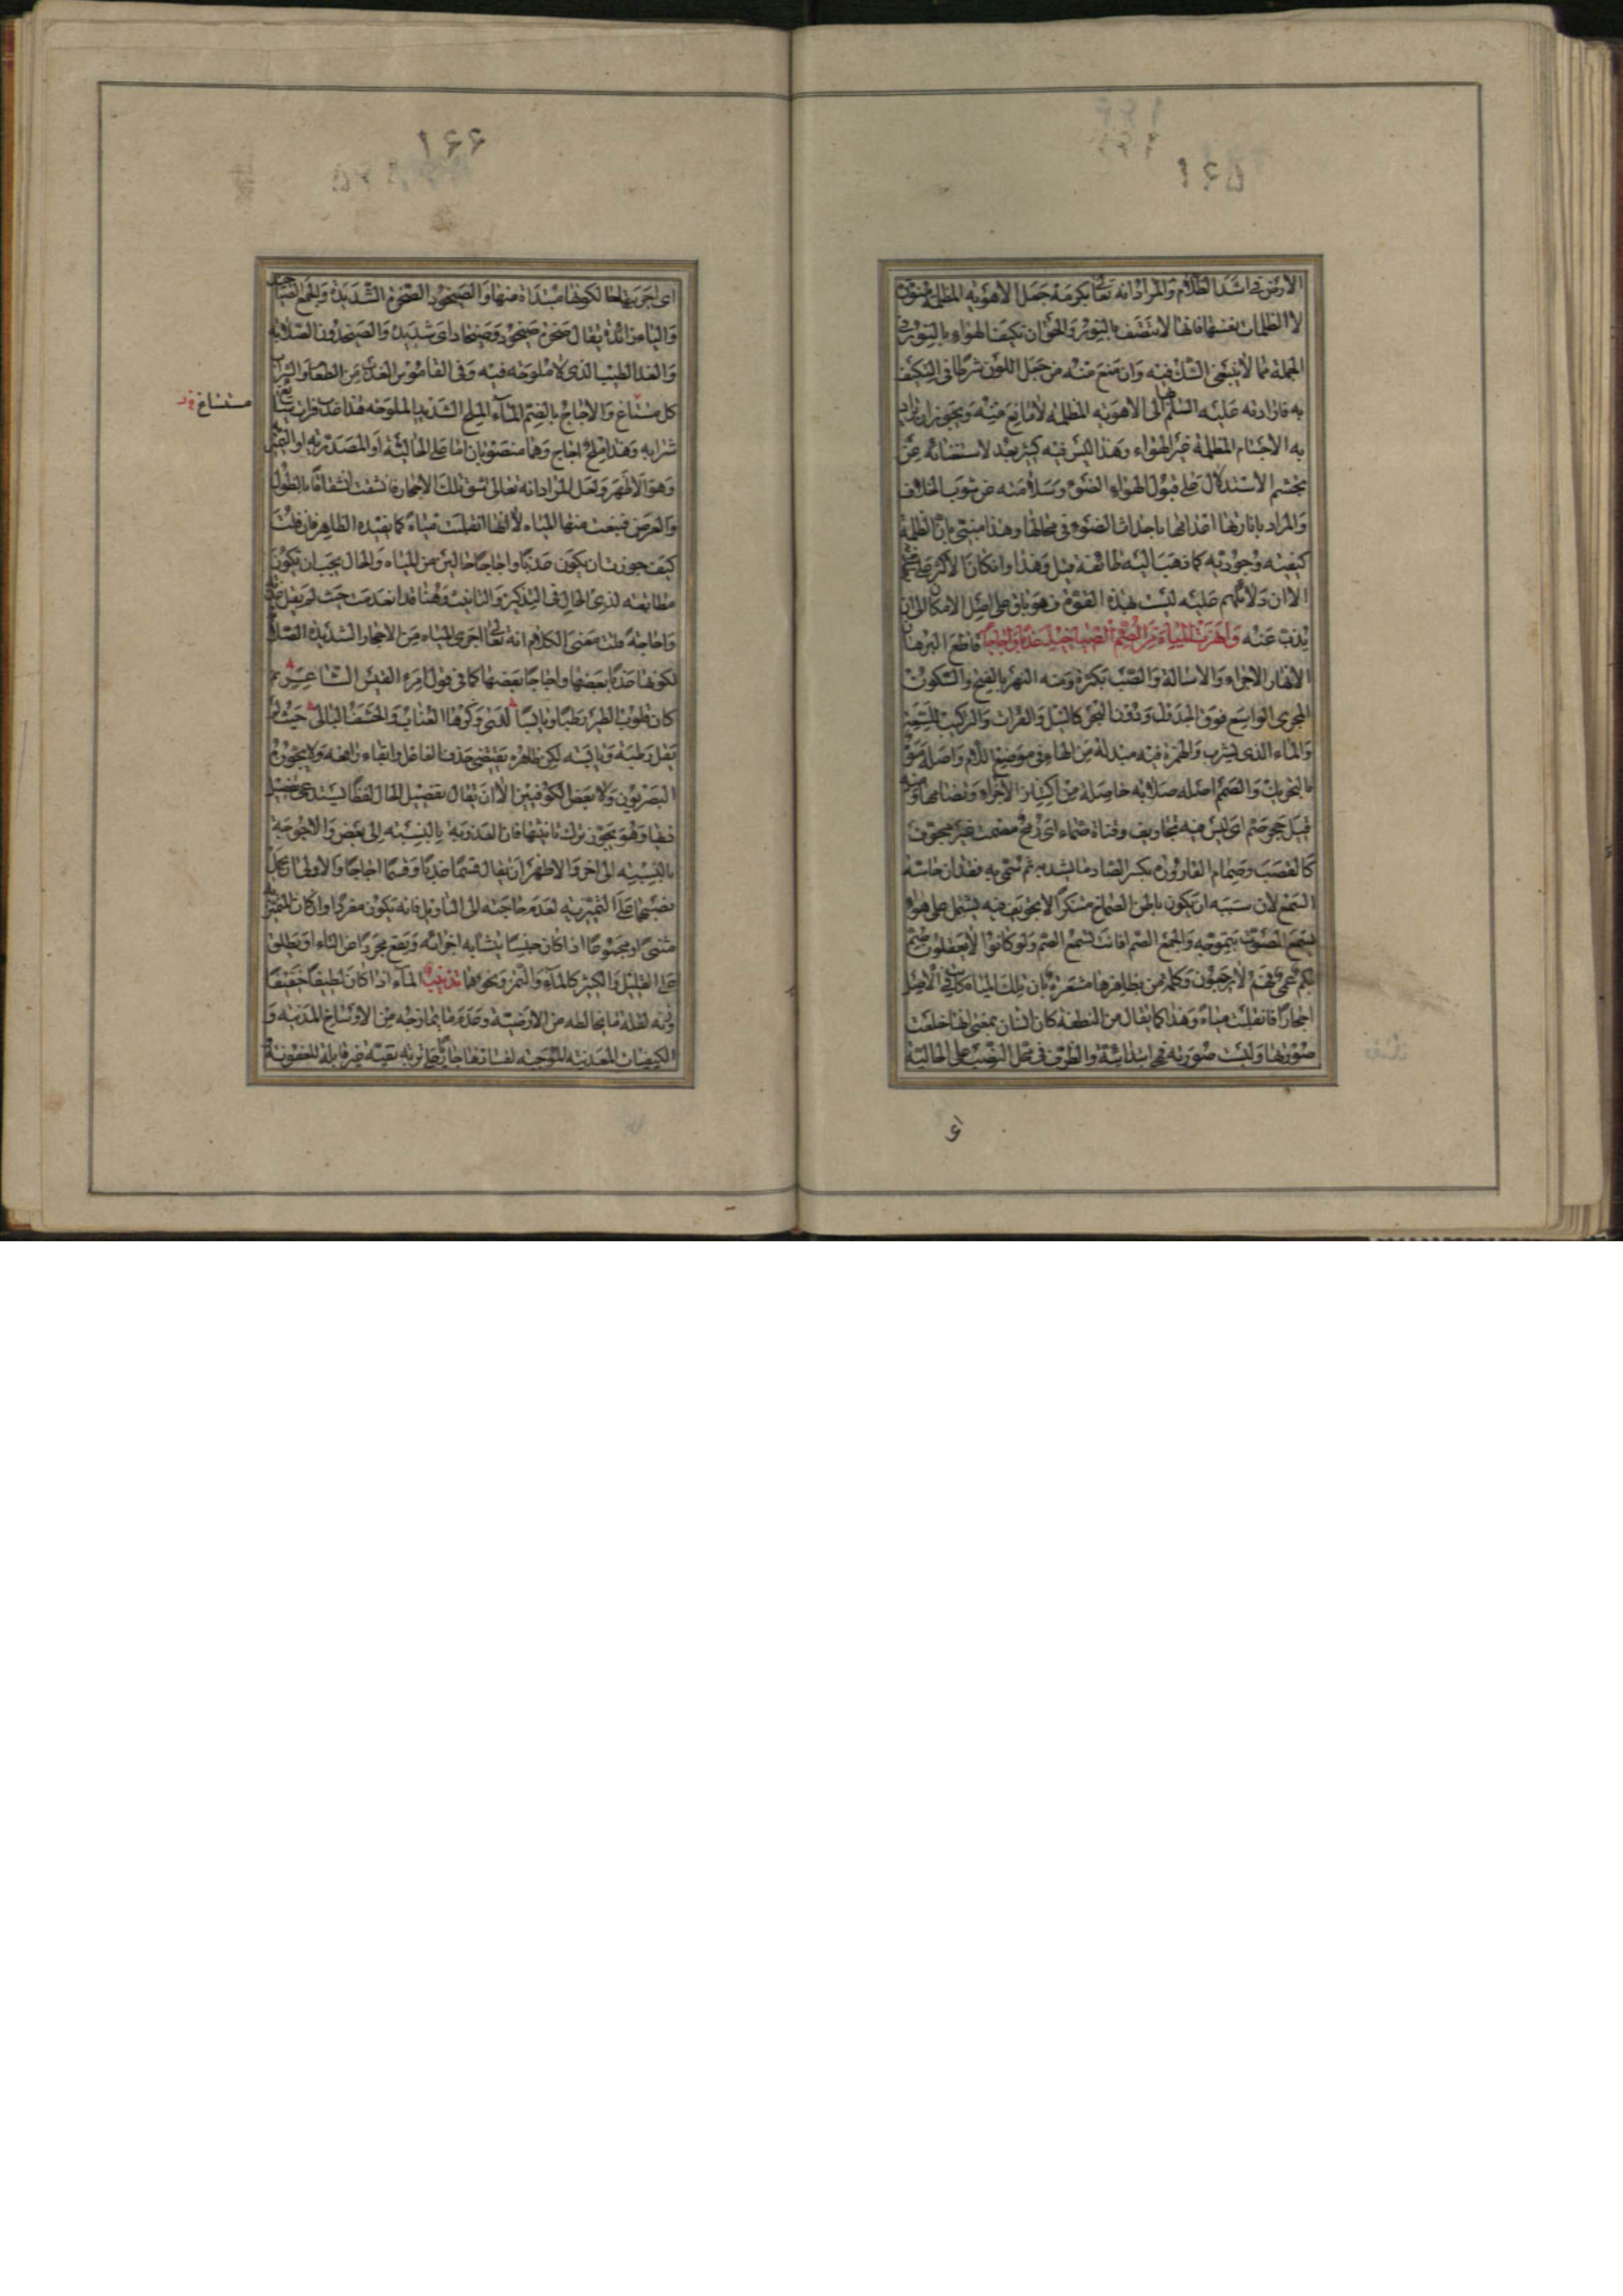 ١٦٥
الارض فى اشد الظلام والمراد انه تعالى بكرمه جعل الاهوية المظلمة منورة
لا الظلمات بنفسها فانها لا تتصف بالنور والحق ان تكيف الهواء بالنور فى
الجملة مما لا ينبغى الشك فيه وان منع منه من جعل اللون شرطا فى التكيف
به فارادته عليه السلم الى الاهوية المظلمة لا مانع منه ويجوز ان يراد
به الاجسام المظلمة غير الهواء وهذا ليس فيه كثير بعد لاستغنائه عن
تجشم الاستدلال على قبول الهواء الضوء وسلامته عن شوب الخلاف
والمراد بانارتها اضدادها باحداث الضوء فى محالها وهذا مبنى بان الظلمة
كيفية وجودية كما ذهب اليه طائفة قبل وهذا وان كان الاكثر على
الا ان دلائلهم عليه ليست بهذه القوة فهو باق على اصل الامكان الى ان
يذب عنه وانهرت المياه من الصم الصياخيد عذبا واجاجا قاطع البرهان
الانهار الاجراء والاسالة والصب بكثرة ومنه النهر بالفتح والسكون
المجرى الواسع فوق الجدول ودون البحر كالنيل والفرات والتركيب للسعة
والماء الذى يشرب والهمزة فيه مبدلة من الهاء فى موضع اللام واصله موه
بالتحريك والصمم اصله صلابة حاصلة من اكتناز الاجزاء وتضامها ومنه
قيل حجر صم اى ليس فيه تجاويف وقناة صماء اى رمح مصمت غير مجوف
كالقصب وصمام القارورة بكسر الصاد ما يشد به ثم سمى به فقدان حاسة
السمع لان سببه ان يكون باطن الصماخ مكتنزا لا تجويف فيه يشتمل على هواء
يسمع الصوت بتموجه والجمع الصم افانت تسمع الصم ولو كانوا لا يعقلون صم
بكم عمى فهم لا يرجعون وكلمة من بظاهرها مشعرة بان تلك المياه كانت فى الاصل
احجارا فانقلبت مياه وهذا كما يقال من النطفة كان انسان بمعنى انها خلعت
صورتها ولبست صورته فهى ابتدائية والظرف فى محل النصب على الحالية
اى
١٦٦
اى اجريتها حالكونها مبتداة منها والصيخود الصخرة الشديدة والجمع الصياخيد
والياء زائدة يقال صخرة صيخود وصيخاد اى شديدة والصيخدون الصلابة
والعذب الطيب الذى لا ملوحة فيه وفى القاموس العذب من الطعام والشراب
كل مستساغ والاجاج بالضم الماء الملح الشديد الملوحة هذا عذب فرات سائغ
مستساغ
شرابه وهذا ملح اجاج وهما منصوبان اما على الحالية او المصدرية او التميز
وهو الاظهر ولعل المراد انه تعالى شق تلك الاحجار فانشقت انشقاقا بالطول
والعرض فنبعت منها المياه لا انها انقلبت مياه كما يفيده الظاهر فان قلت
كيف جوزت ان يكون عذبا واجاجا حالين من المياه والحال يجب ان تكون
مطابقة لذى الحال فى التذكير والتانيث وهنا قد انعدمت حيث لم يقل عذبة
واجاجة قلت معنى الكلام انه تعالى اجرى المياه من الاحجار الشديدة الصلابة
لكونها عذبا بعضها واجاجا بعضها كما فى قول امرء القيس الشاعر شعر
كان قلوب الطير رطبا ويابسا لدى وكرها العناب والحشف البالى حيث لم
يقل رطبة ويابسة لكن ظاهره يقتضى حذف الفاعل وابقاء رافعه ولا يجوزه
البصريون ولا بعض الكوفيين الا ان يقال تفصيل الحال لفظا يستدعى تفصيل
ذيها وهو يجوز ترك تانيثها فان العذوبة بالنسبة الى بعض والاجوجة
بالنسبة الى اخر والاظهر ان يقال قسما عذبا وقسما اجاجا والاولى ان يجعل
نصبهما على التميزية لعدم حاجته الى التاويل فانه يكون مفردا وان كان المميز
مثنى او مجموعا اذا كان جنسا يتشابه اجزائه ويقع مجردا عن التاء او يطلق
على القليل والكثير كالماء والتمر ونحوهما تذنيب الماء اذا كان لطيفا خفيفا
وزنه لقلة ما يخالطه من الارضية وعدم ما يمازجه من الاوساخ المدنية و
الكيفيات المعدنية